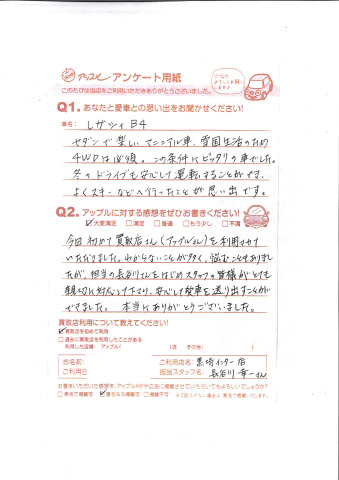 アップル アンケート用紙
このたびは当店をご利用いただきありがとうございました。
Q1. あなたと愛車との思い出をお聞かせください!
車名: レガシィB4
セダンで楽しいマニュアル車、雪国生活のため
4WDは必須。この条件にピッタリの車でした。
冬のドライブも安心して運転することができ、
よくスキーなどへ行ったことが思い出です。
Q2. アップルに対する感想をぜひお書きください!
☑大変満足 □満足 □普通 □もう少し □不満
今回初めて買取店さん(アップルさん)を利用させて
いただきました。わからないことが多く、悩むこともありまし
たが、担当の長谷川さんをはじめスタッフの皆様がとても
親切に対応して下さり、安心して愛車を送り出すことが
できました。 本当にありがとうございました。
買取店利用について教えてください!
☑買取店を初めて利用
□過去に買取店を利用したことがある
利用した店舗: アップル( )店 その他( )
お名前: ご利用店名: 黒埼インター店
ご利用日 担当スタッフ名: 長谷川 幸一さん
お書きいただいた感想を、アップルHPや広告に掲載させていただいてもよろしいでしょうか?
□実名で掲載可 ☑匿名なら掲載可 □掲載不可